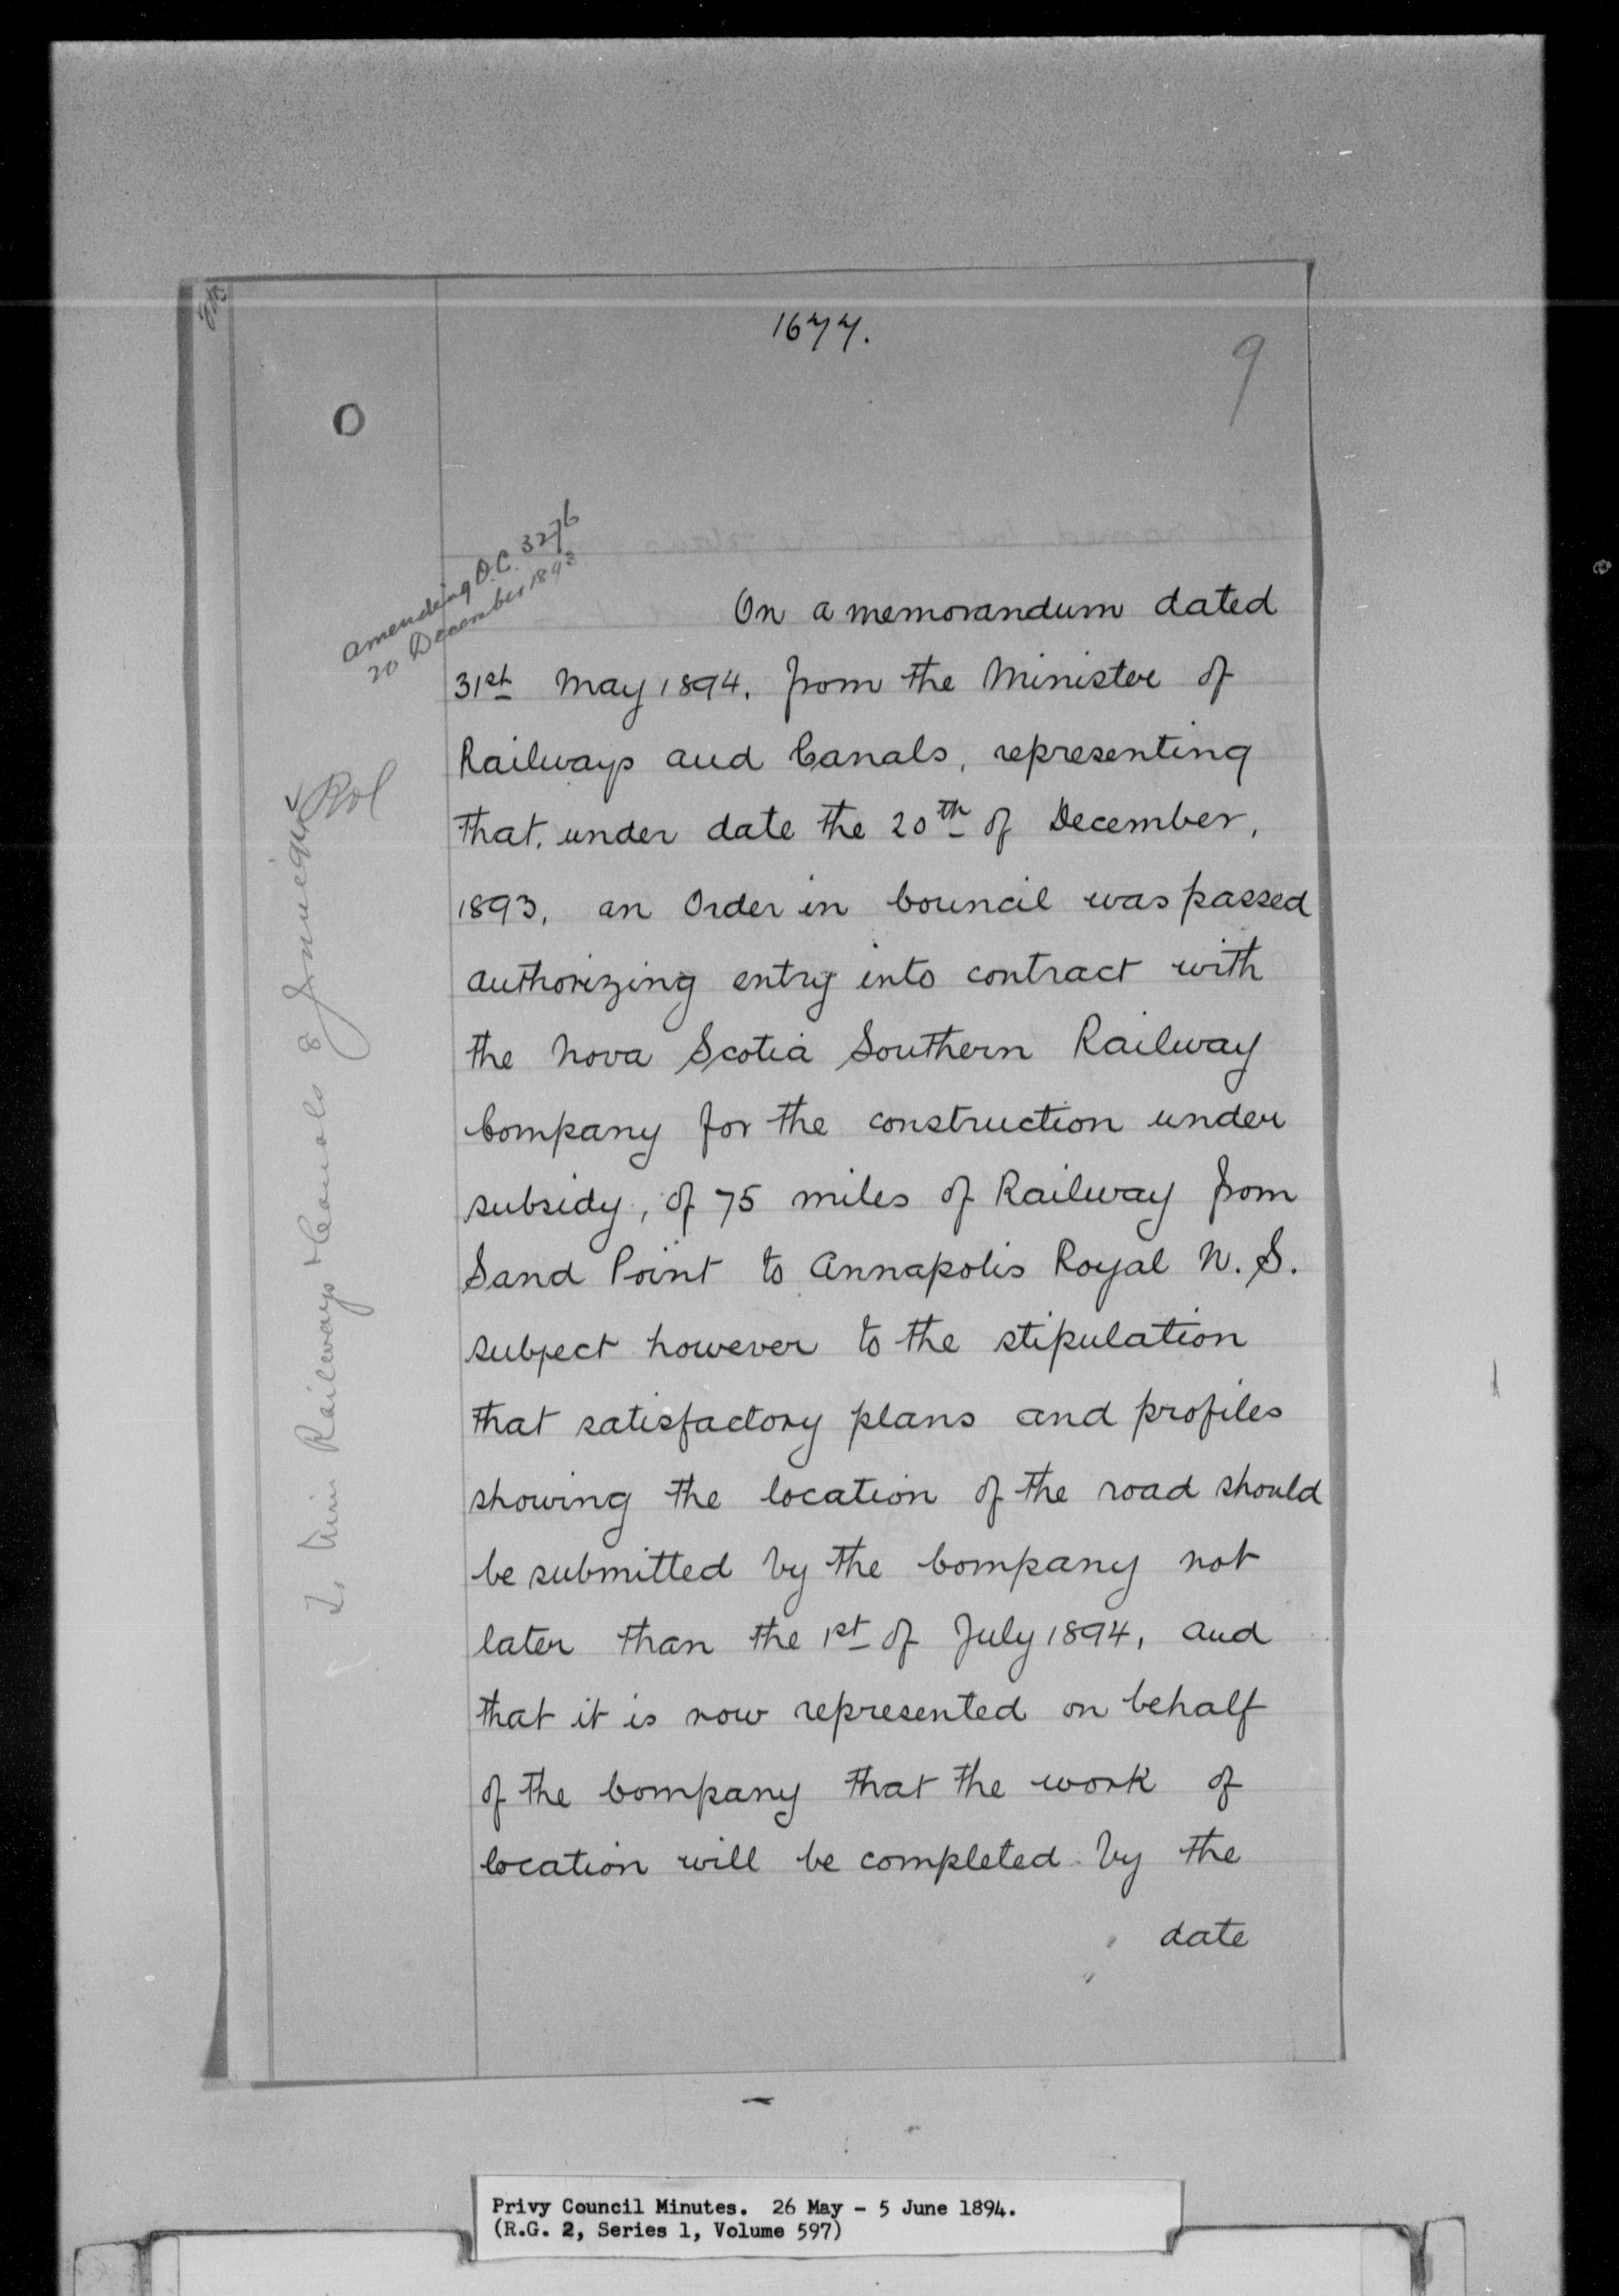 1677.
9
amending O.C. 3276
20 December 1893
On a memorandum dated
31st May 1894. from the Minister of
Railways and Canals, representing
that, under date the 20th of December,
1893, an Order in Council was passed
authorizing entry into contract with
the Nova Scotia Southern Railway
Company for the construction under
subsidy, of 75 miles of Railway from
Sand Point to Annapolis Royal N. S.
subject however to the stipulation
that satisfactory plans and profiles
showing the location of the road should
be submitted by the Company not
later than the 1st of July 1894, and
that it is now represented on behalf
of the Company that the work of
location will be completed by the
date
Min Railways & Canals 8 June 94
Privy Council Minutes. 26 May - 5 June 1894.
(R.G. 2, Series 1, Volume 597)